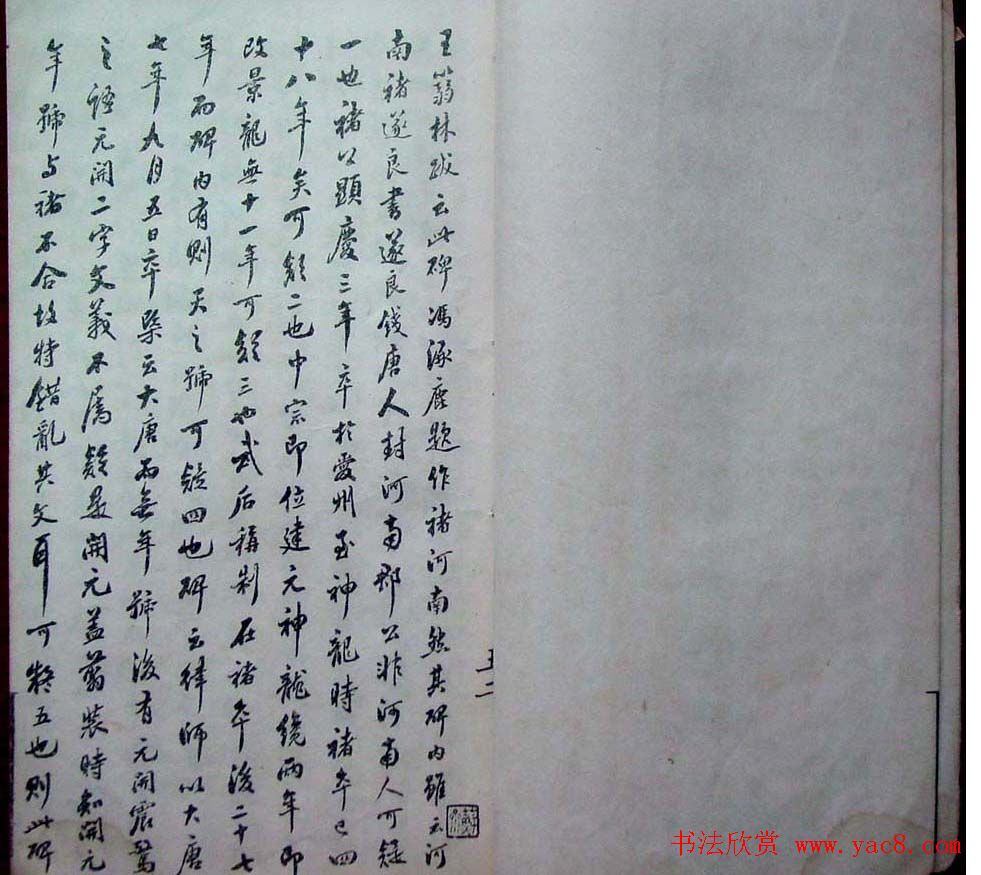 王蒻林跋云此碑馮涿鹿題作褚河南然其碑内雖云河
南褚遂良書遂良錢唐人封河南郡公非河南人可疑
一也褚公顯慶三年卒於愛州至神龍時褚卒已四
十八年矣可疑二也中宗即位建元神龍纔兩年即
改景龍無十一年可疑三也武后稱制在褚卒後二十七
年而碑内有則天之號可疑四也碑云律師以大唐
七年九月五日卒槩云大唐而無年號後有元開震驚
之語元開二字文義不屬疑是開元蓋翦裝時知開元
年號与褚不合故特錯亂其文耳可疑五也則此碑
五二
书法欣赏 www.yac8.com